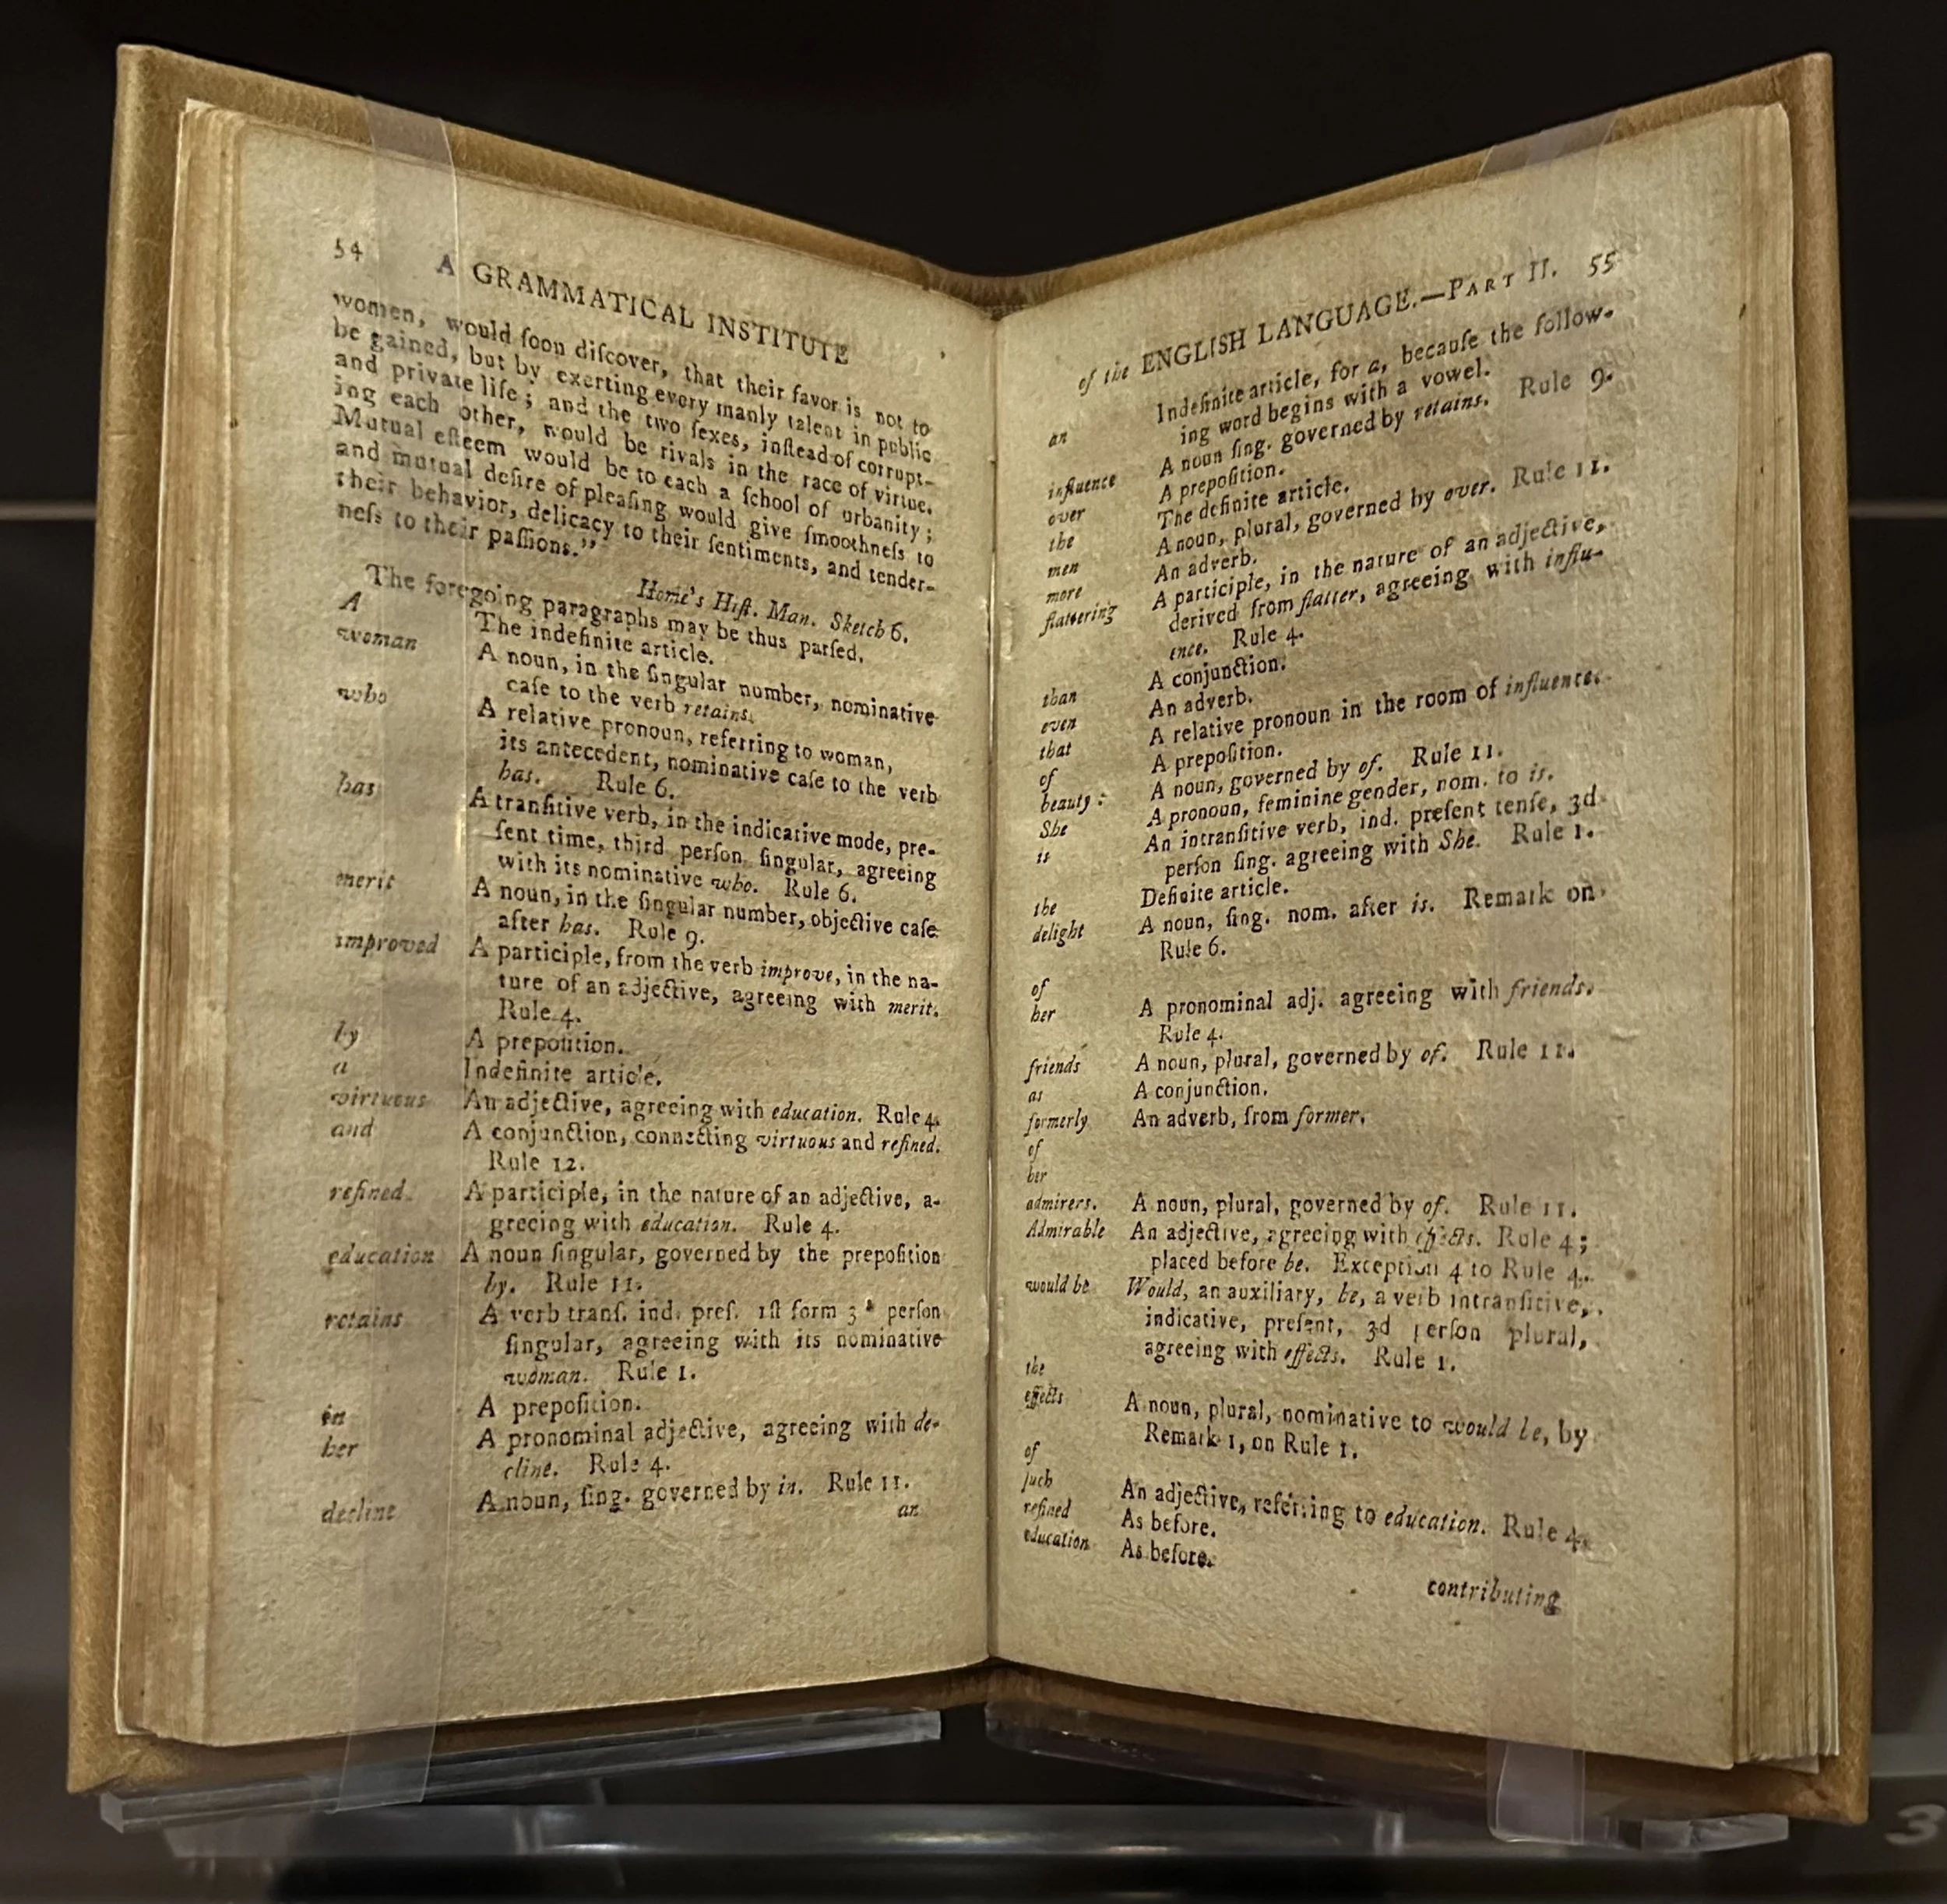 54
A GRAMMATICAL INSTITUTE
women, would ſoon diſcover, that their favor is not to
be gained, but by exerting every manly talent in public
and private life; and the two ſexes, inſtead of corrupt-
ing each other, would be rivals in the race of virtue.
Mutual eſteem would be to each a ſchool of urbanity;
and mutual deſire of pleaſing would give ſmoothneſs to
their behavior, delicacy to their ſentiments, and tender-
neſs to their paſſions.”
Home's Hiſt. Man. Sketch 6.
The foregoing paragraphs may be thus parſed.
A The indefinite article.
woman A noun, in the ſingular number, nominative
caſe to the verb retains.
who A relative pronoun, referring to woman,
its antecedent, nominative caſe to the verb
has. Rule 6.
has A tranſitive verb, in the indicative mode, pre-
ſent time, third perſon ſingular, agreeing
with its nominative who. Rule 6.
merit A noun, in the ſingular number, objective caſe
after has. Rule 9.
improved A participle, from the verb improve, in the na-
ture of an adjective, agreeing with merit.
Rule 4.
by A prepoſition.
a Indefinite article.
virtuous An adjective, agreeing with education. Rule 4.
and A conjunction, connecting virtuous and refined.
Rule 12.
refined A participle, in the nature of an adjective, a-
greeing with education. Rule 4.
education A noun ſingular, governed by the prepoſition
by. Rule 11.
retains A verb tranſ. ind. preſ. 1ſt form 3d perſon
ſingular, agreeing with its nominative
woman. Rule 1.
in A prepoſition.
her A pronominal adjective, agreeing with de-
cline. Rule 4.
decline A noun, ſing. governed by in. Rule 11.
an
of the ENGLISH LANGUAGE.—PART II. 55
an Indefinite article, for a, becauſe the follow-
ing word begins with a vowel.
influence A noun ſing. governed by retains. Rule 9.
over A prepoſition.
the The definite article.
men A noun, plural, governed by over. Rule 11.
more An adverb.
flattering A participle, in the nature of an adjective,
derived from flatter, agreeing with influ-
ence. Rule 4.
than A conjunction.
even An adverb.
that A relative pronoun in the room of influence.
of A prepoſition.
beauty: A noun, governed by of. Rule 11.
She A pronoun, feminine gender, nom. to is.
is An intranſitive verb, ind. preſent tenſe, 3d
perſon ſing. agreeing with She. Rule 1.
the Definite article.
delight A noun, ſing. nom. after is. Remark on
Rule 6.
of
her A pronominal adj. agreeing with friends.
Rule 4.
friends A noun, plural, governed by of. Rule 11.
as A conjunction.
formerly An adverb, from former.
of
her
admirers. A noun, plural, governed by of. Rule 11.
Admirable An adjective, agreeing with effects. Rule 4;
placed before be. Exception 4 to Rule 4.
would be Would, an auxiliary, be, a verb intranſitive,
indicative, preſent, 3d perſon plural,
agreeing with effects. Rule 1.
the
effects A noun, plural, nominative to would be, by
Remark 1, on Rule 1.
of
ſuch An adjective, referring to education. Rule 4.
refined As before.
education As before.
contributing
3